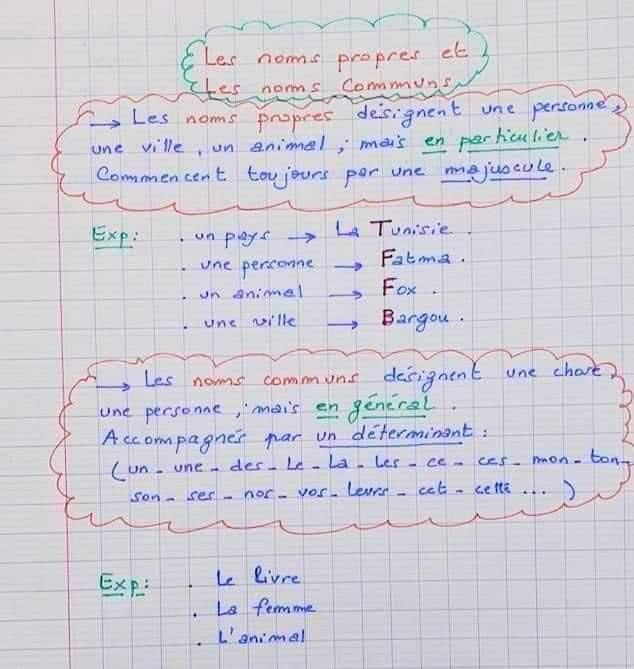 Les noms propres et
Les noms Communs
→ Les noms propres désignent une personne,
une ville, un animal, ; mais en particulier.
Commencent toujours par une majuscule.
Exp: . un pays → La Tunisie.
. une personne → Fatma.
. un animal → Fox.
. une ville → Bargou.
→ Les noms communs désignent une chose,
une personne, ; mais en général.
Accompagnés par un déterminant :
(un - une - des - Le - La - Les - ce - ces - mon - ton -
son - ses - nos - vos - leurs - cet - cette ... )
Exp: . Le livre
. La femme
. L'animal